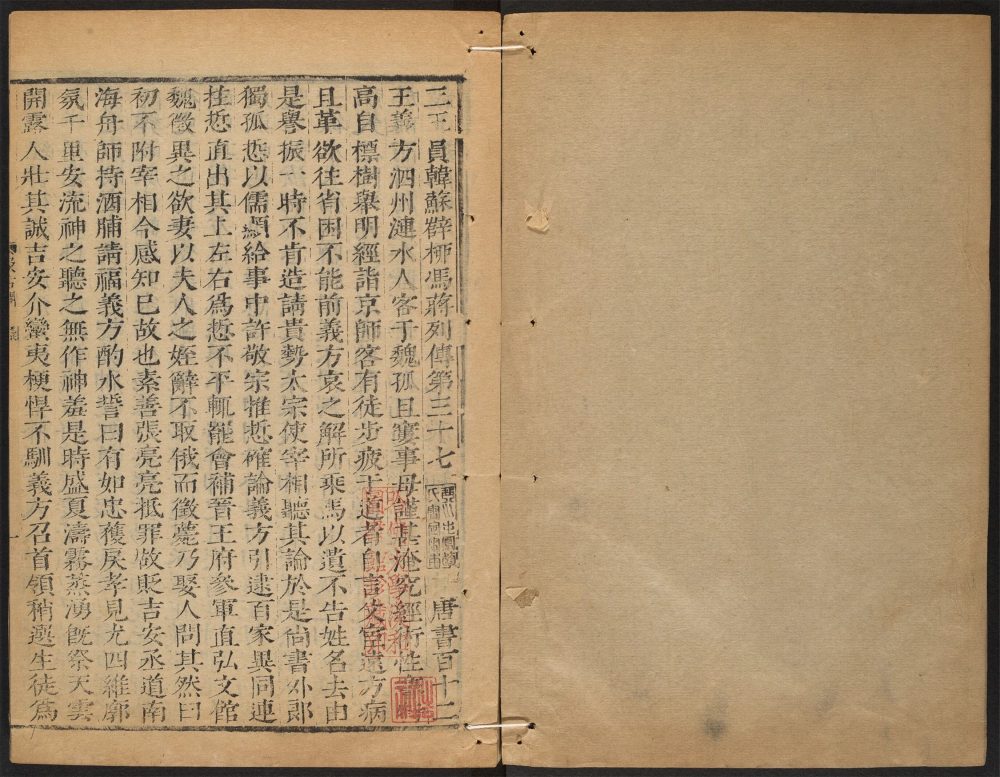 二王員韓蘇薛柳馮蔣列傳第三十七　唐書百十二
王義方泗州漣水人客于魏孤且窶事母謹甚淹究經術性謇
高自標樹舉明經詣京師客有徒步疲于道者自言父宦遠方病
且革欲往省困不能前義方哀之解所乘馬以遺不告姓名去由
是譽振一時不肯造請貴勢太宗使宰相聽其論於是尚書外郎
獨孤悊以儒顯給事中許敬宗推悊確論義方引逮百家異同連
拄悊直出其上左右為悊不平輒罷會補晉王府參軍直弘文館
魏徵異之欲妻以夫人之姪辭不取俄而徵薨乃娶人問其然曰
初不附宰相今感知已故也素善張亮亮抵罪故貶吉安丞道南
海舟師持酒脯請福義方酌水誓曰有如忠獲戾孝見尤四維廓
氛千里安流神之聽之無作神羞是時盛夏濤霧蒸湧既祭天雲
開露人壯其誠吉安介蠻夷梗悍不馴義方召首領稍選生徒為